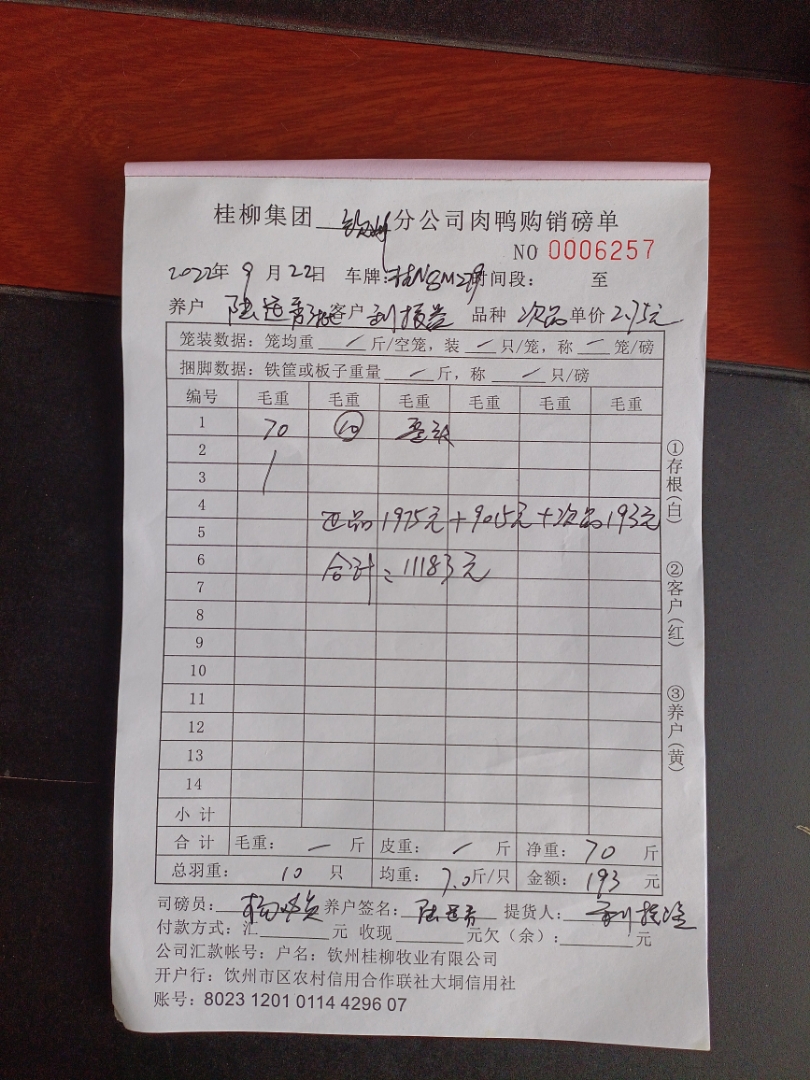 桂柳集团 钦州 分公司肉鸭购销磅单
NO 0006257
2022年 9月22日 车牌: 时间段: 至
养户 陆 客户 品种 次品 单价 2.75元
笼装数据: 笼均重 / 斤/空笼, 装 / 只/笼, 称 / 笼/磅
捆脚数据: 铁筐或板子重量 / 斤, 称 / 只/磅
编号 毛重 毛重 毛重 毛重 毛重 毛重
1 70 10
2
3
4
正品 1975元+9015元+次品193元
5
6
合计=11183元
7
8
9
10
11
12
13
14
小计
合计 毛重: / 斤 皮重: / 斤 净重: 70 斤
总羽重: 10 只 均重: 7.0斤/只 金额: 193 元
司磅员: 杨 养户签名: 陆 提货人:
付款方式: 汇 元 收现 元欠(余): 元
公司汇款帐号: 户名: 钦州桂柳牧业有限公司
开户行: 钦州市区农村信用合作联社大垌信用社
账号: 8023 1201 0114 4296 07
①存根(白)
②客户(红)
③养户(黄)